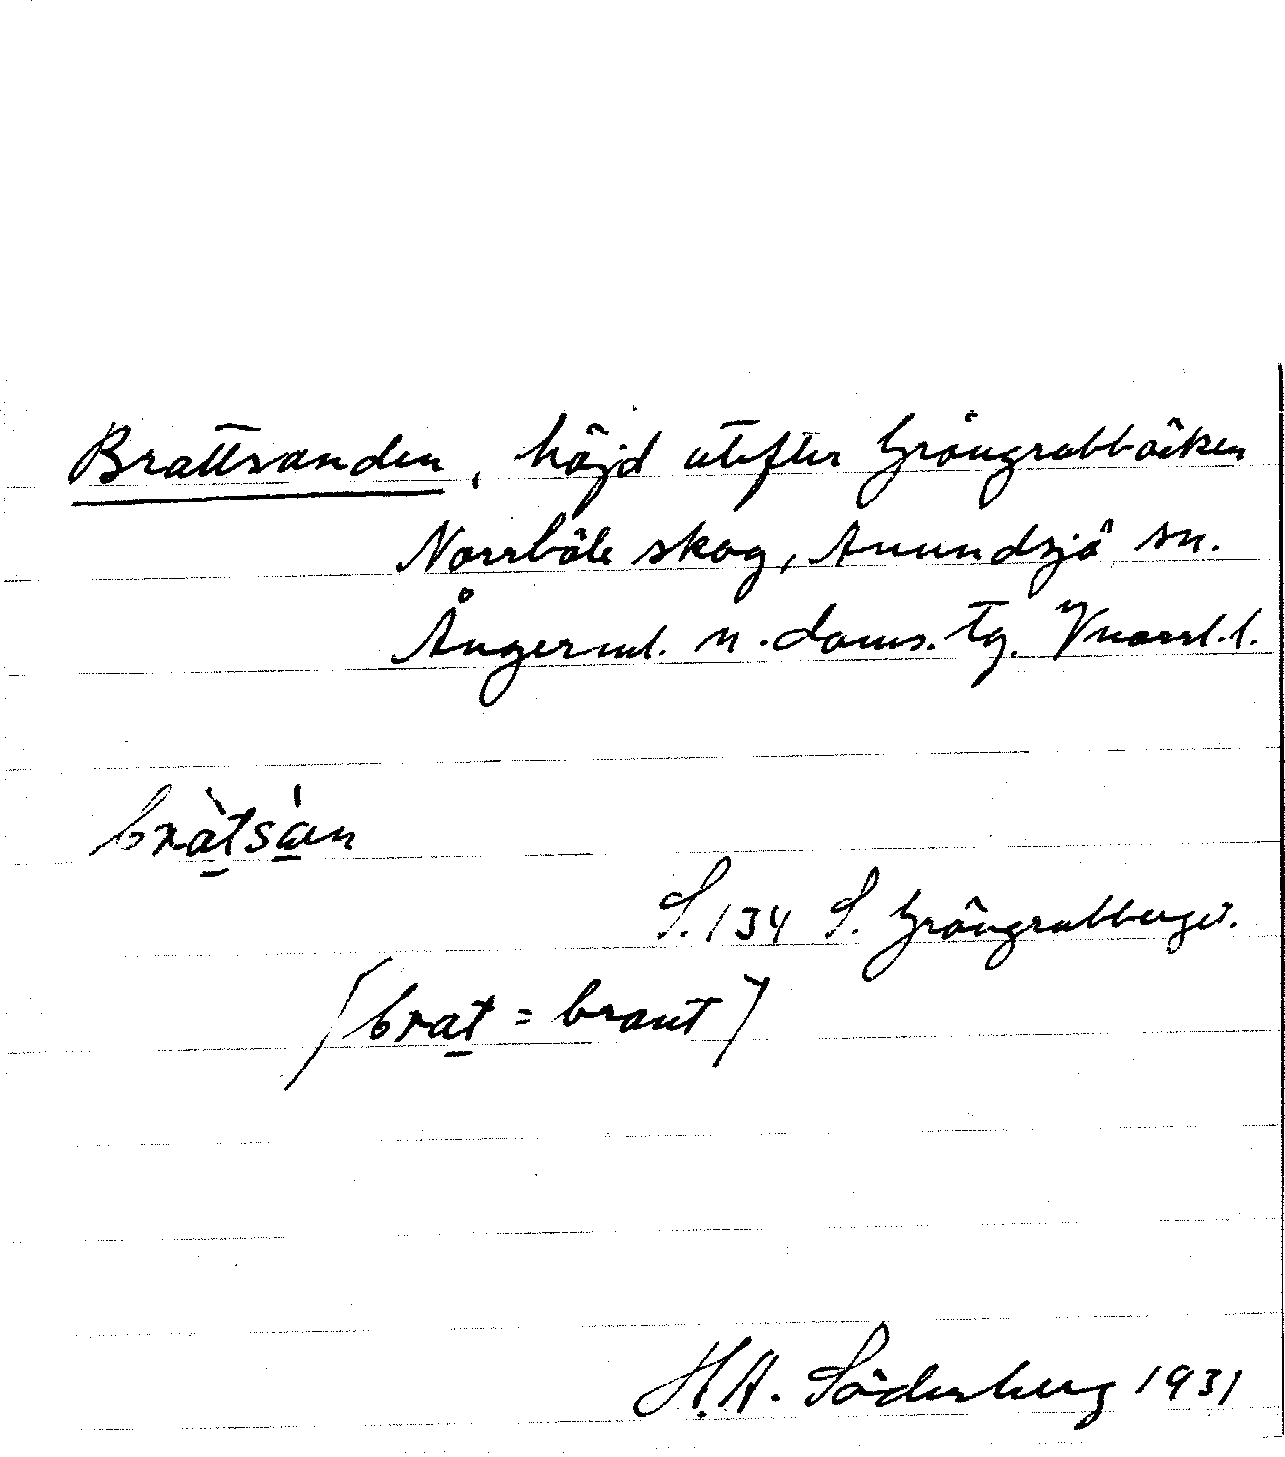 Brattsanden, höjd utefter Grångrabbäcken
Norrböle skog, Anundsjö sn.
Ångerml. n. doms. tg. Vnorrl. l.
bràtsàn
S. 134 S. Grångrabberget.
/brat = brant/
H. A. Söderberg 1931